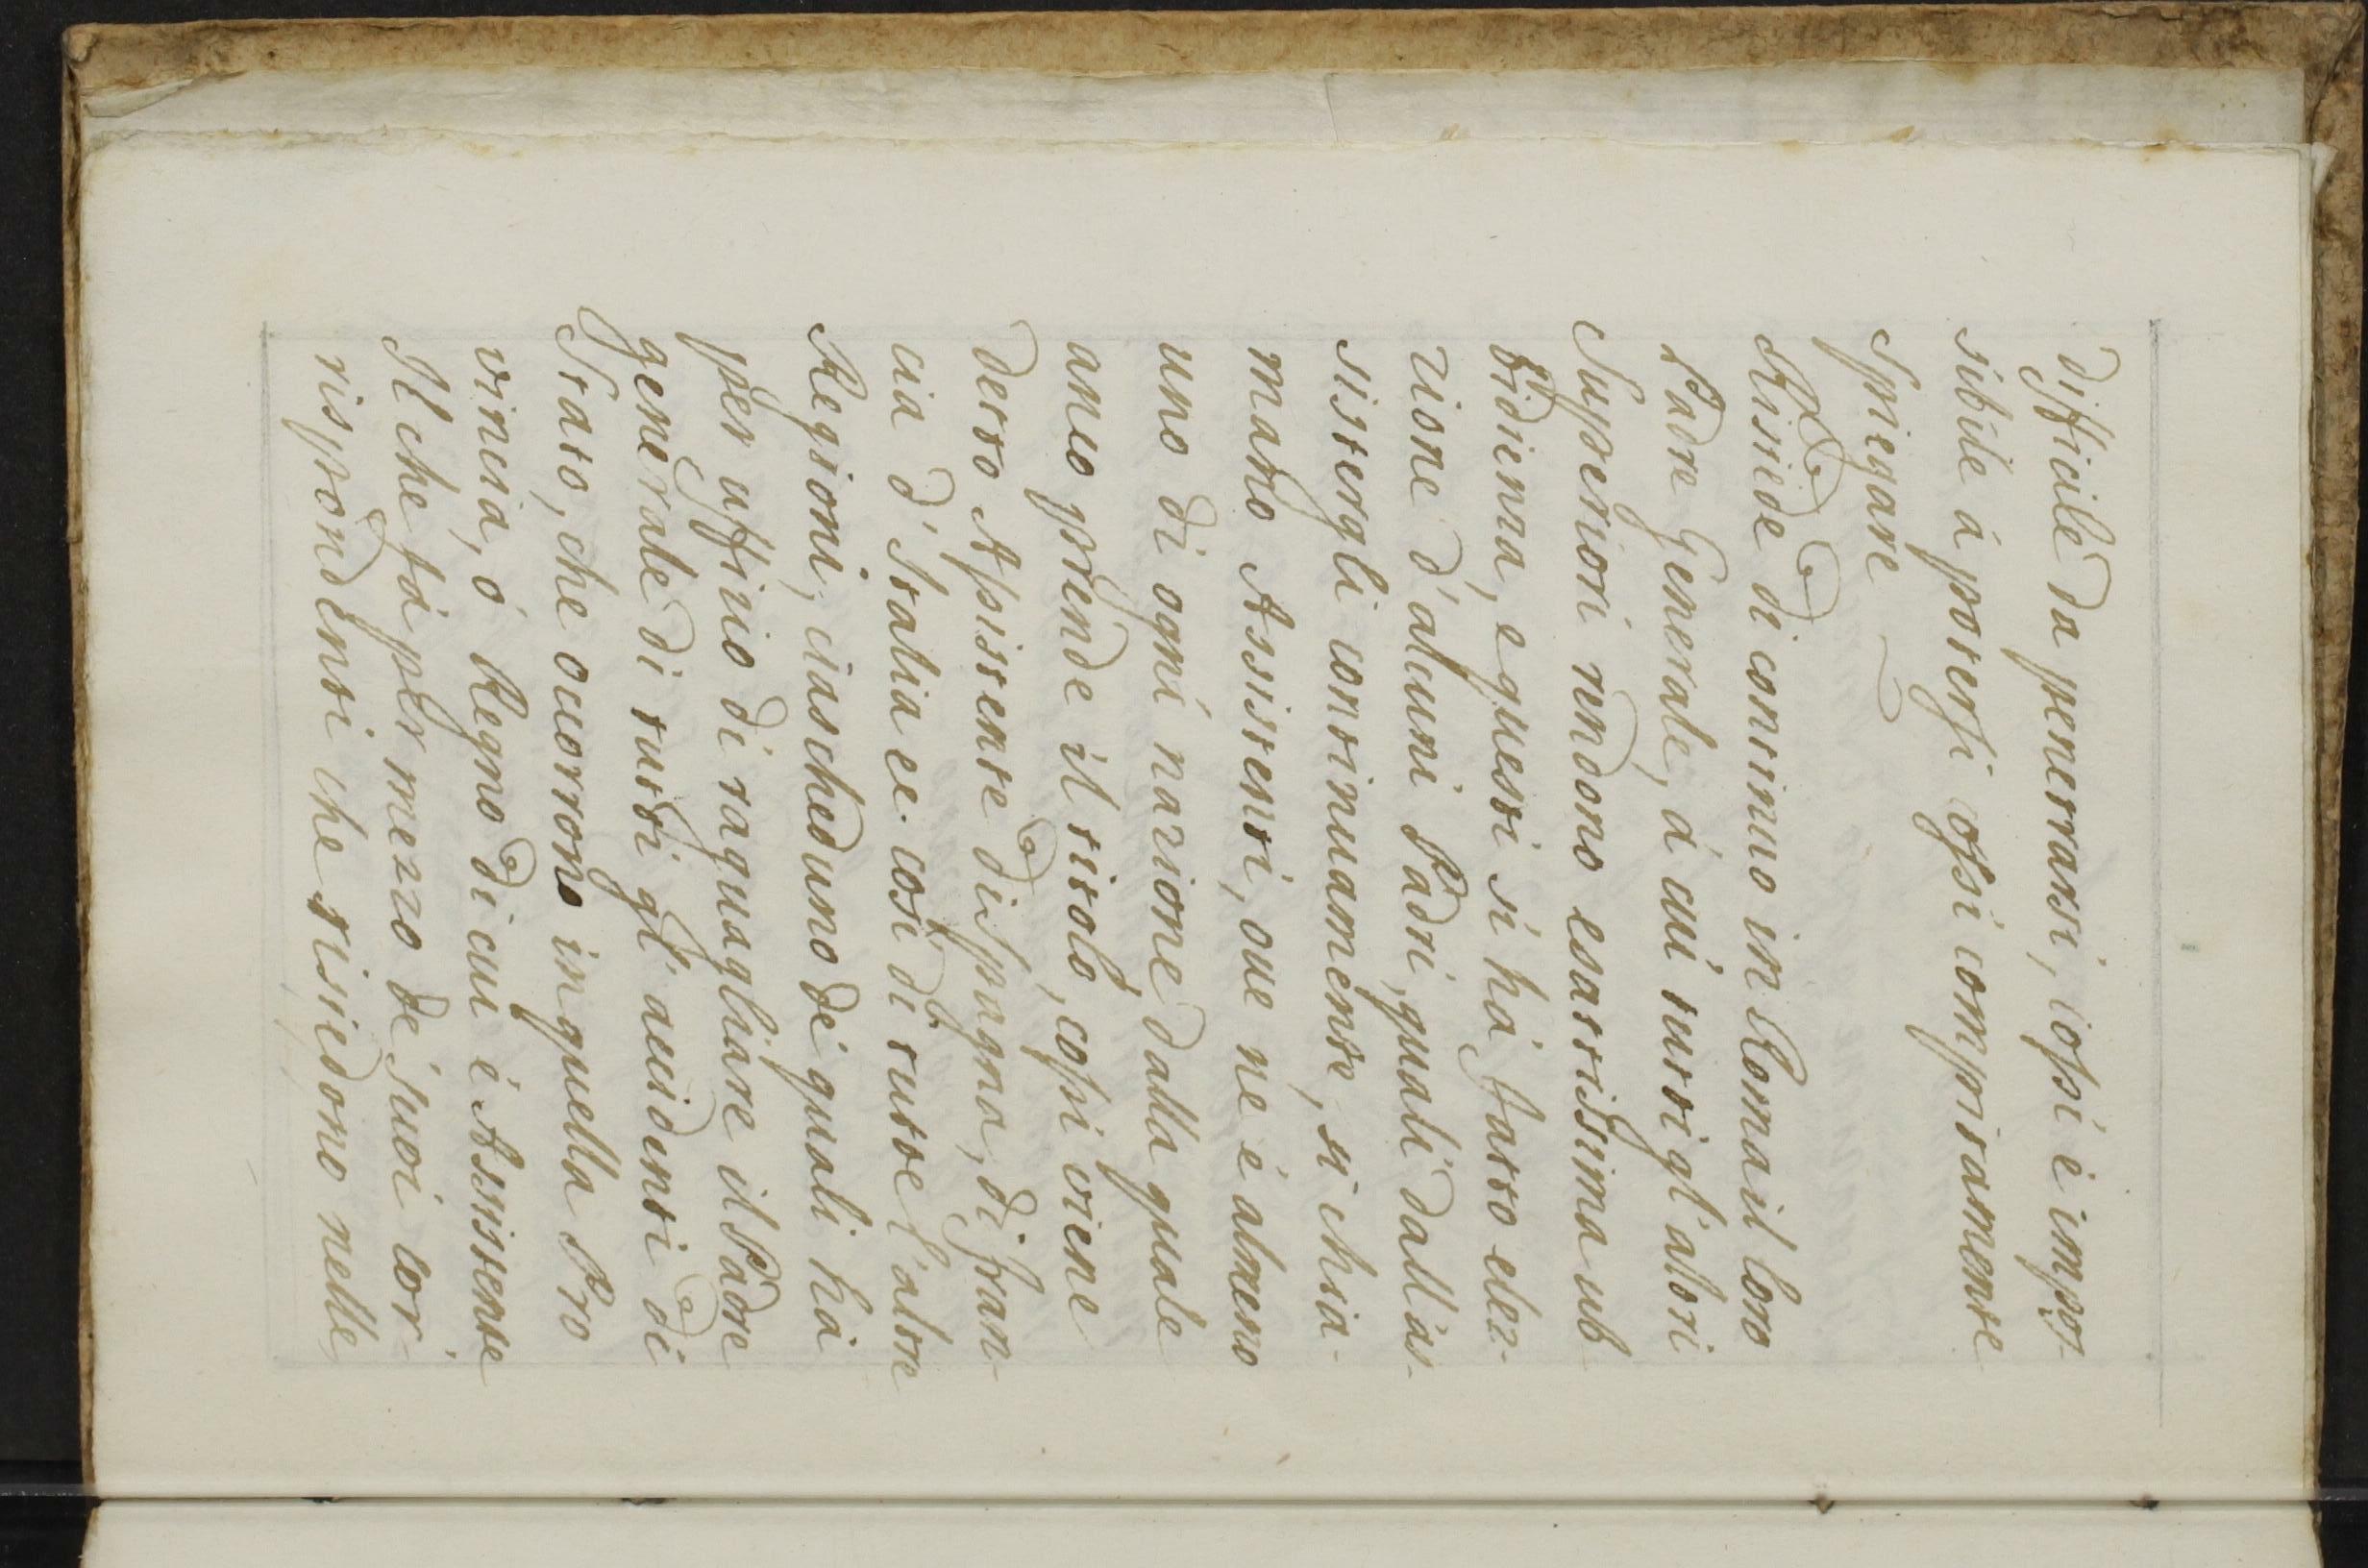 difficile da penetrarsi, cossi è impos-
sibile à potersi ossi compitamente
spiegare
Risiede di continuo in Roma il loro
Padre Generale, à cui tutti gl'altri
Superiori rendono esattissima ub
bidienza, e questi si hà fatto elez-
zione d'alcuni Padri, quali dall'as-
sistergli continuamente, si chia-
mano Assistenti, oue ne è almeno
uno di ogni nazione dalla quale
anco prende il titolo, cossi viene
detto Assistente di Spagna, di Fran-
cia d'Italia et così di tutte l'altre
Regioni, ciascheduno de quali hà
per uffizio di raguagliare il Padre
generale di tutti gl'accidenti di
Stato, che occorrono in quella Pro
vincia, ò Regno di cui è Assistente
Il che fà per mezzo de suoi cor-
rispondenti che risiedono nelle